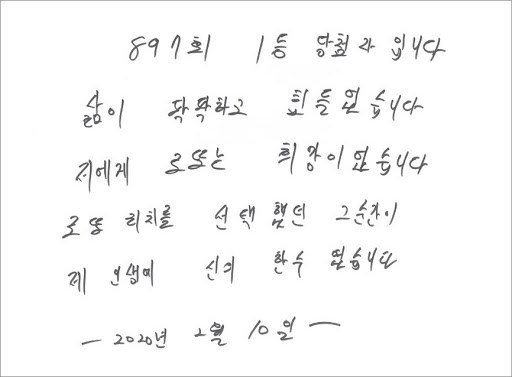 897회 1등 당첨자 입니다
삶이 팍팍하고 힘들었습니다
저에게 로또는 희망이었습니다
로또 리치를 선택했던 그순간이
제 인생에 신의 한수 였습니다
- 2020년 2월 10일 -